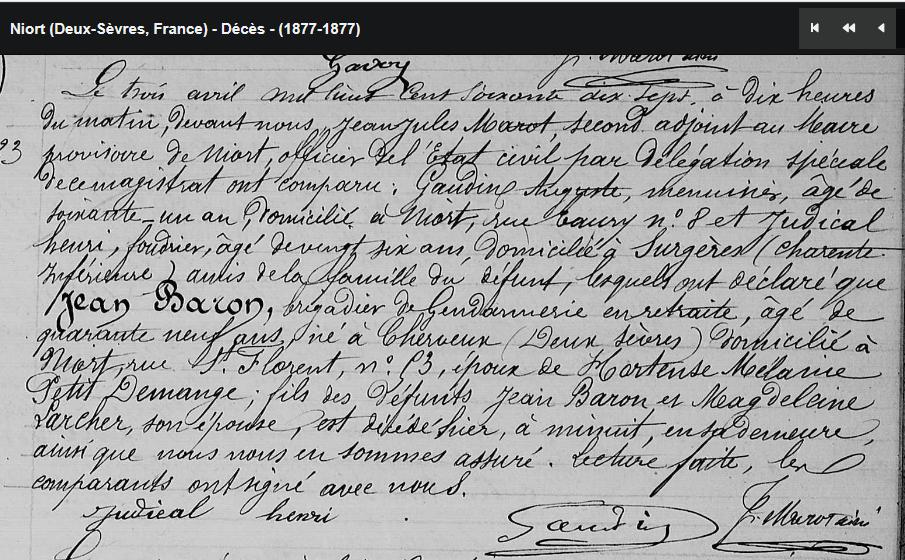 Niort (Deux-Sèvres, France) - Décès - (1877-1877)
Gavoy J. Marot
Le trois avril mil huit cent soixante dix-sept, à dix heures
du matin, devant nous, Jean Jules Marot, second adjoint au Maire
93
provisoire de Niort, officier de l'Etat civil par délégation spéciale
de ce magistrat ont comparu : Gaudin Auguste, menuisier, âgé de
soixante-un an, domicilié à Niort, rue n° 8 et Judical
henri, foudrier, âgé de vingt six ans, domicilié à Surgères (Charente
Inférieure) amis de la famille du défunt, lesquels ont déclaré que
Jean Baron, brigadier de Gendarmerie en retraite, âgé de
quarante neuf ans, né à Cherveux (Deux Sèvres) domicilié à
Niort, rue St Florent, n° 13, époux de Hortense Mélanie
Petit Demange ; fils des défunts Jean Baron et Magdeleine
Larcher, son épouse, est décédé hier, à minuit, en sa demeure,
ainsi que nous nous en sommes assuré. Lecture faite, les
comparants ont signé avec nous.
Judical henri Gaudin J. Marot